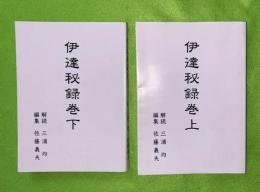 伊達秘録巻上
解読 三浦 均
編集 佐藤 義夫
伊達秘録巻下
解読 三浦 均
編集 佐藤 義夫